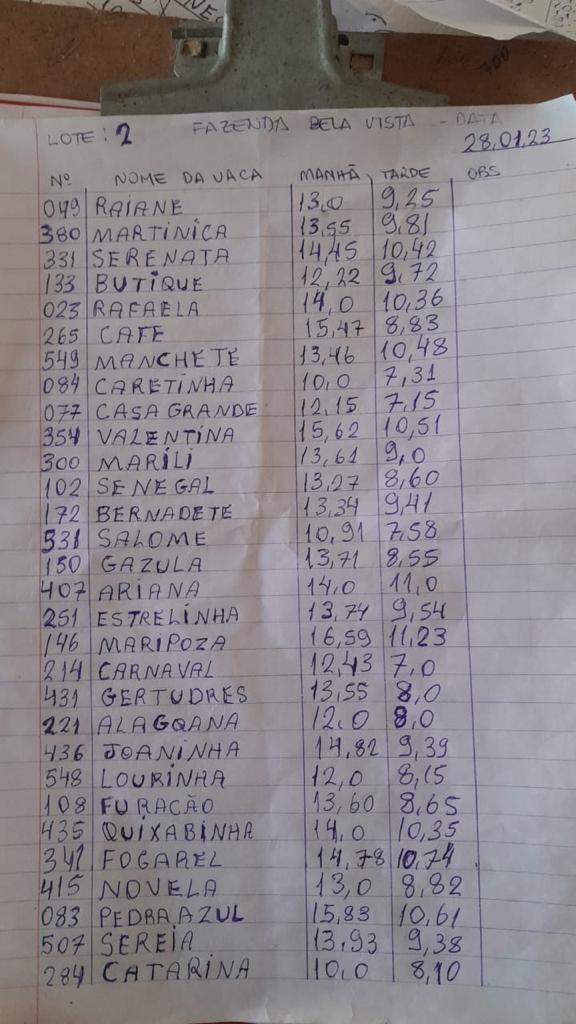 LOTE: 2 FAZENDA BELA VISTA - DATA
28,01,23
Nº NOME DA VACA MANHÃ TARDE OBS
049 RAIANE 13,0 9,25
380 MARTINICA 13,55 9,81
331 SERENATA 14,45 10,42
133 BUTIQUE 12,22 9,72
023 RAFAELA 14,0 10,36
265 CAFE 15,47 8,83
549 MANCHETE 13,46 10,48
084 CARETINHA 10,0 7,31
077 CASA GRANDE 12,15 7,15
354 VALENTINA 15,62 10,51
300 MARILI 13,61 9,0
102 SENEGAL 13,27 8,60
172 BERNADETE 13,34 9,41
531 SALOME 10,91 7,58
150 GAZULA 13,71 8,55
407 ARIANA 14,0 11,0
251 ESTRELINHA 13,74 9,54
146 MARIPOZA 16,59 11,23
214 CARNAVAL 12,43 7,0
431 GERTUDRES 13,55 8,0
221 ALAGOANA 12,0 8,0
436 JOANINHA 14,82 9,39
548 LOURINHA 12,0 8,15
108 FURACÃO 13,60 8,65
435 QUIXABINHA 14,0 10,35
FOGAREL 14,78 10,74
415 NOVELA 13,0 8,82
083 PEDRA AZUL 15,83 10,61
507 SEREIA 13,93 9,38
284 CATARINA 10,0 8,10